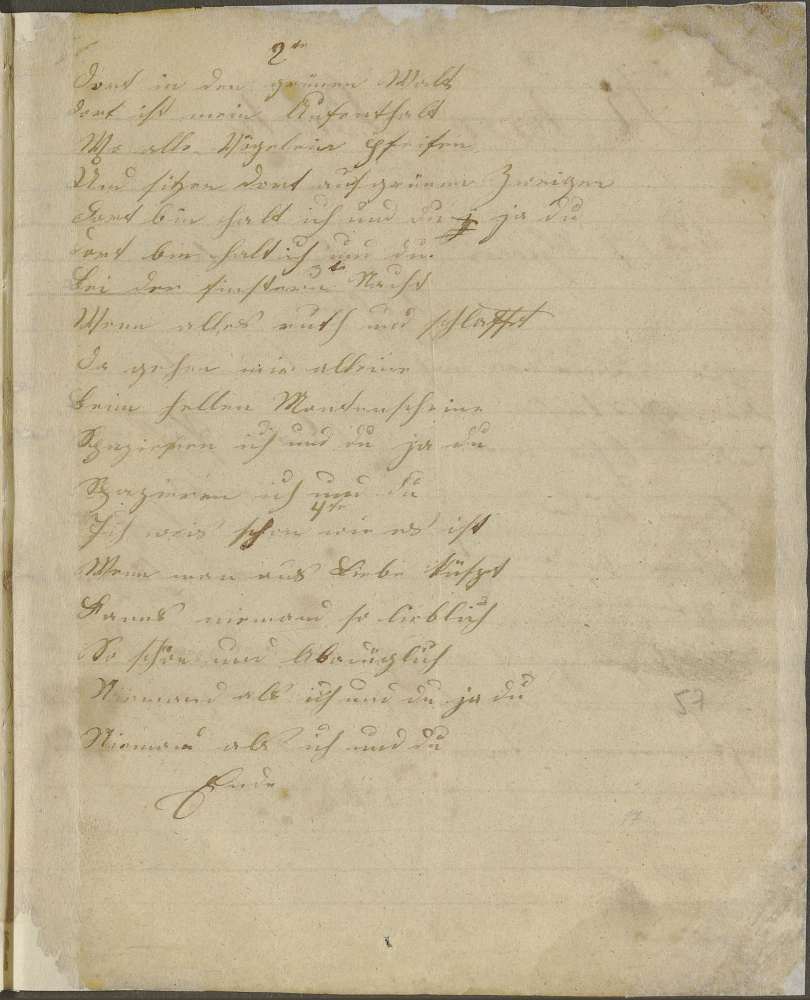 2te
Dort in den grünen Walt
dort ist mein Aufenthalt
Wo alle Vögelein pfeifen
Und sitzen dort auf grünen Zweigen
Dort bin halt ich und du ja du
Dort bin halt ich und du.
3te
Bei der finstern Nacht
Wenn alles ruth und schlafft
Da gehen wir alleine
Beim hellen Montenscheine
Spazieren ich und du ja du
Spazieren ich und du
4te
Ich weis schon wie es ist
Wenn man aus Liebe küßt
Kanns niemand so lieblich
So schön und
Niemand als ich und du ja du
Niemand als ich und du
Ende
57